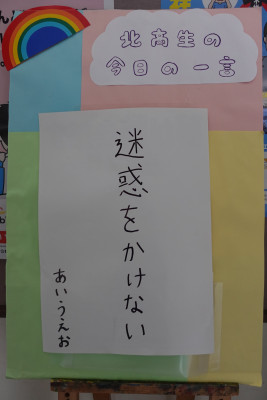 北高生の
今日の一言
迷惑をかけない
あいうえお